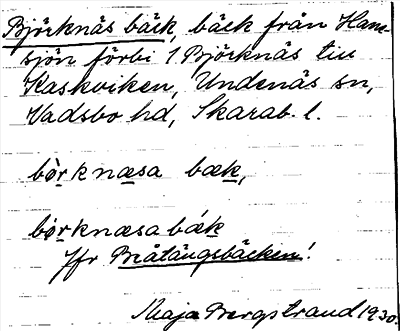 Björknäs bäck, bäck från Ham-
sjön förbi 1. Björknäs till
Kaskviken, Undenäs sn,
Vadsbo hd, Skarab. l.
bòrknæsa bæk,
bòrknæsabæ̀k
Jfr Bråtängsbäcken!
Maja Bergstrand 1930.